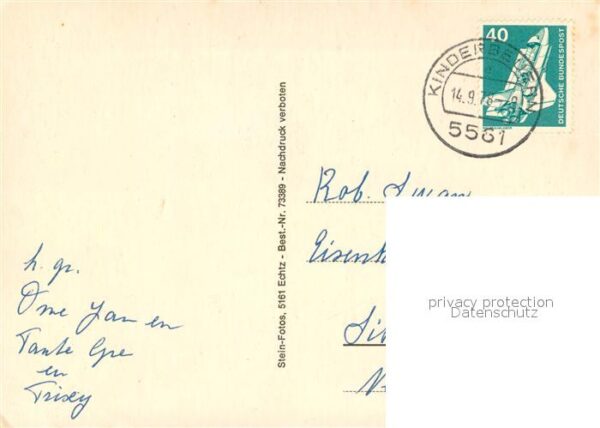 40
DEUTSCHE BUNDESPOST
KINDERBEUERN
14.9.
5561
Stein-Fotos, 5161 Echtz - Best.-Nr. 73389 - Nachdruck verboten
Rob. Swan
Eisenh
Sit
h. gr.
Ome Jan en
Tante Gre
en
Trixy
privacy protection
Datenschutz